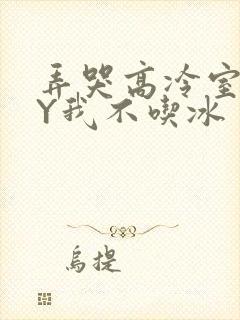 弄哭高冷室
Y我不喫冰
烏提